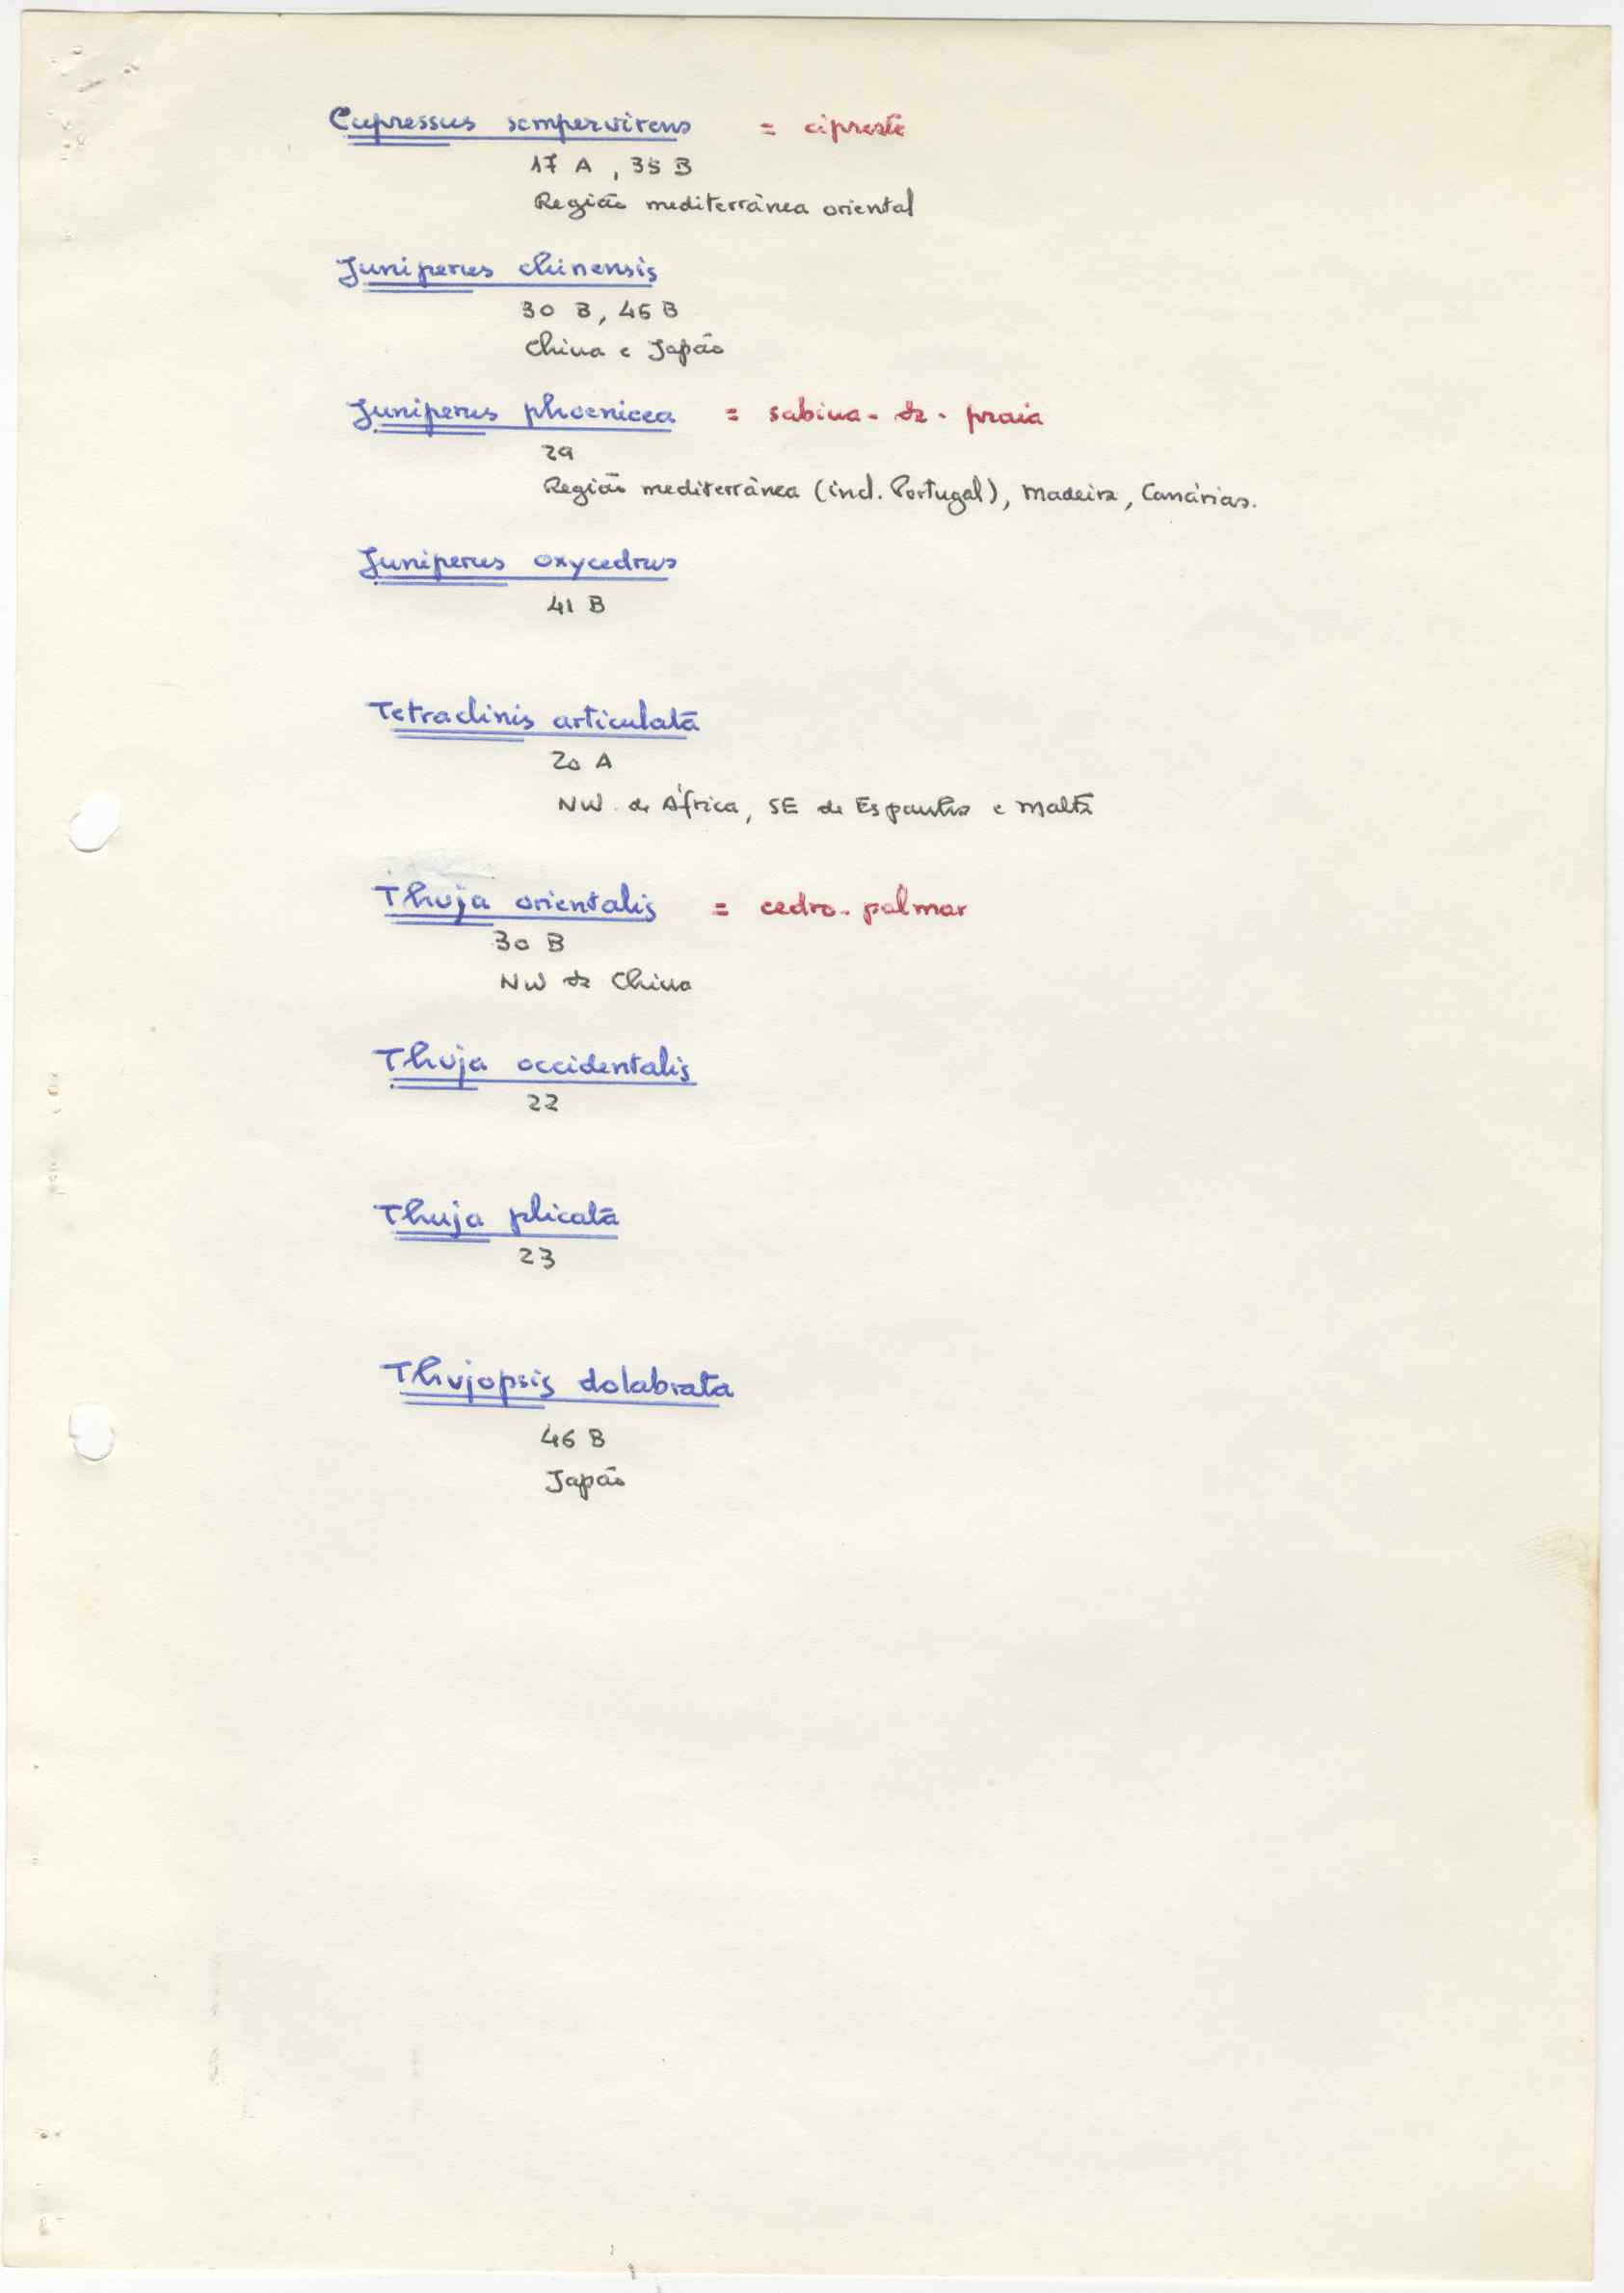 Cupressus sempervirens = cipreste
17 A, 35 B
Região mediterrânea oriental
Juniperus chinensis
30 B, 46 B
China e Japão
Juniperus phoenicea = sabina-da-praia
29
Região mediterrânea (incl. Portugal), Madeira, Canárias.
Juniperus oxycedrus
41 B
Tetraclinis articulata
20 A
NW. de África, SE de Espanha e Malta
Thuja orientalis = cedro-palmar
30 B
NW da China
Thuja occidentalis
22
Thuja plicata
23
Thujopsis dolabrata
46 B
Japão